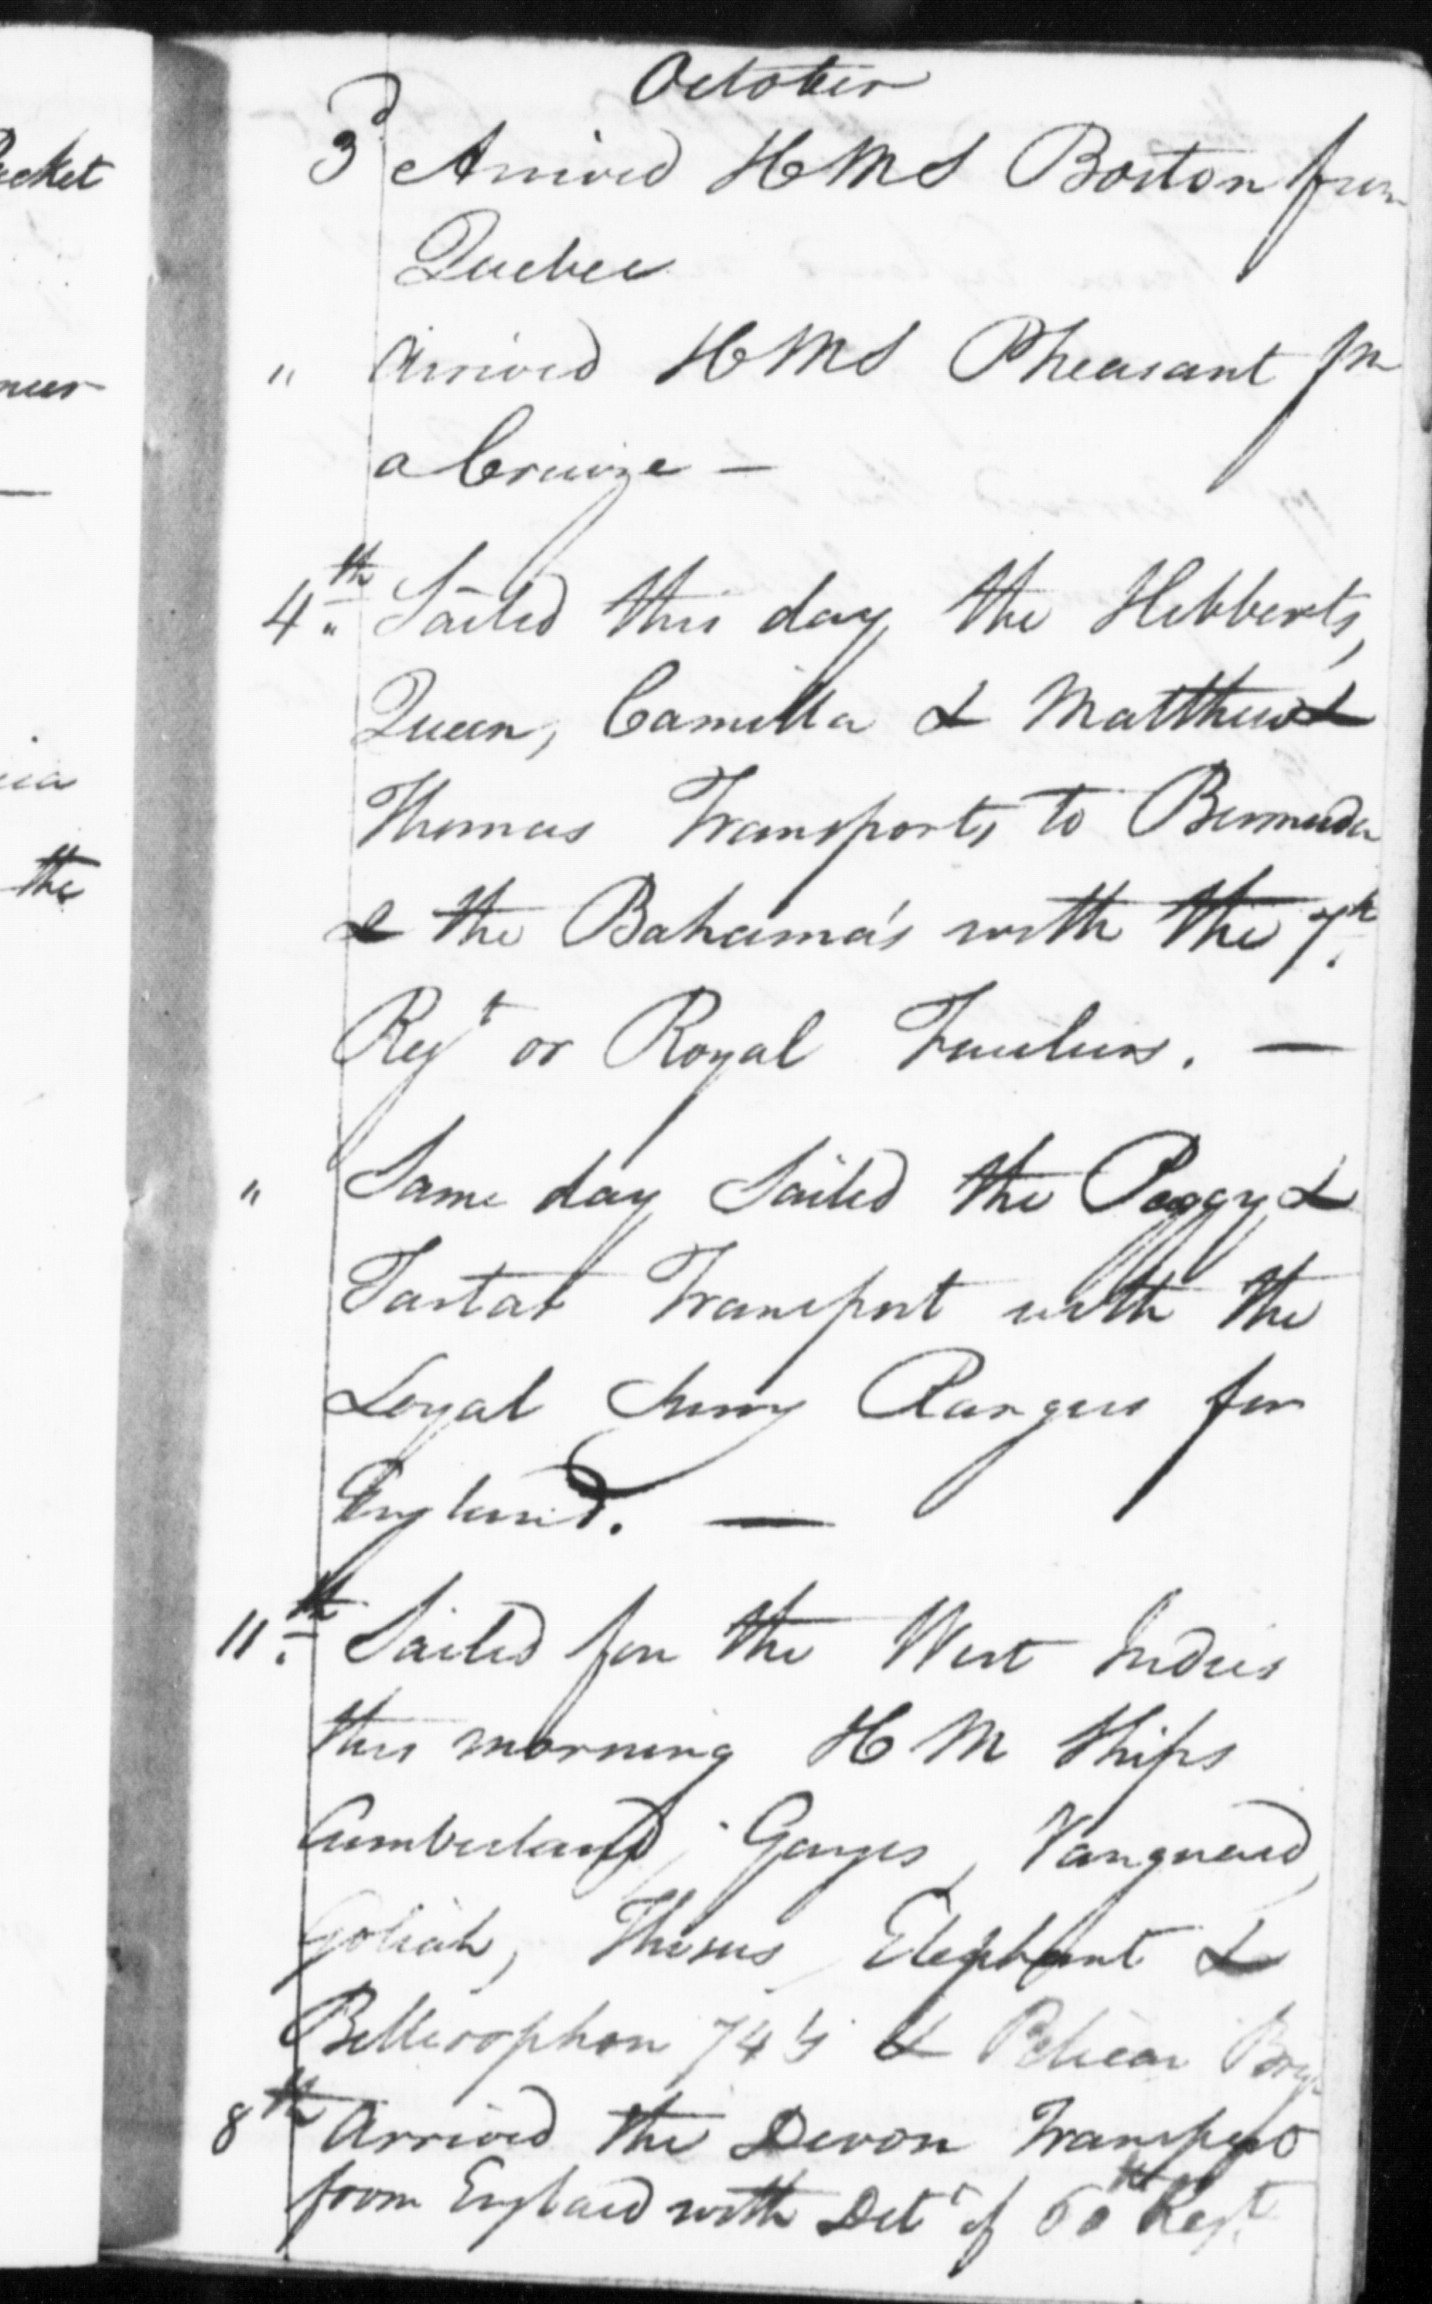 October
3d Arrived HMS Boston from
Quebec
" Arrived HMS Pheasant fm
a Cruize —
4th. Sailed this day the Hibberts,
Queen, Camilla & Matthew &
Thomas Transports to Bermuda
& the Bahama's with the 7th
Regt or Royal Fuzileers. —
" Same day Sailed the Peggy &
Tartar Transport with the
Loyal Surry Rangers for
England. —
11th. Sailed for the West Indies
this morning H M Ships
Cumberland, Ganges, Vanguard,
Goliah, Theseus, Elephant &
Bellerophon 74's & Pelican Brig
8th Arrived the Devon Transport
from England with Dett of 60th Regt
acket
neer
—
ica
the